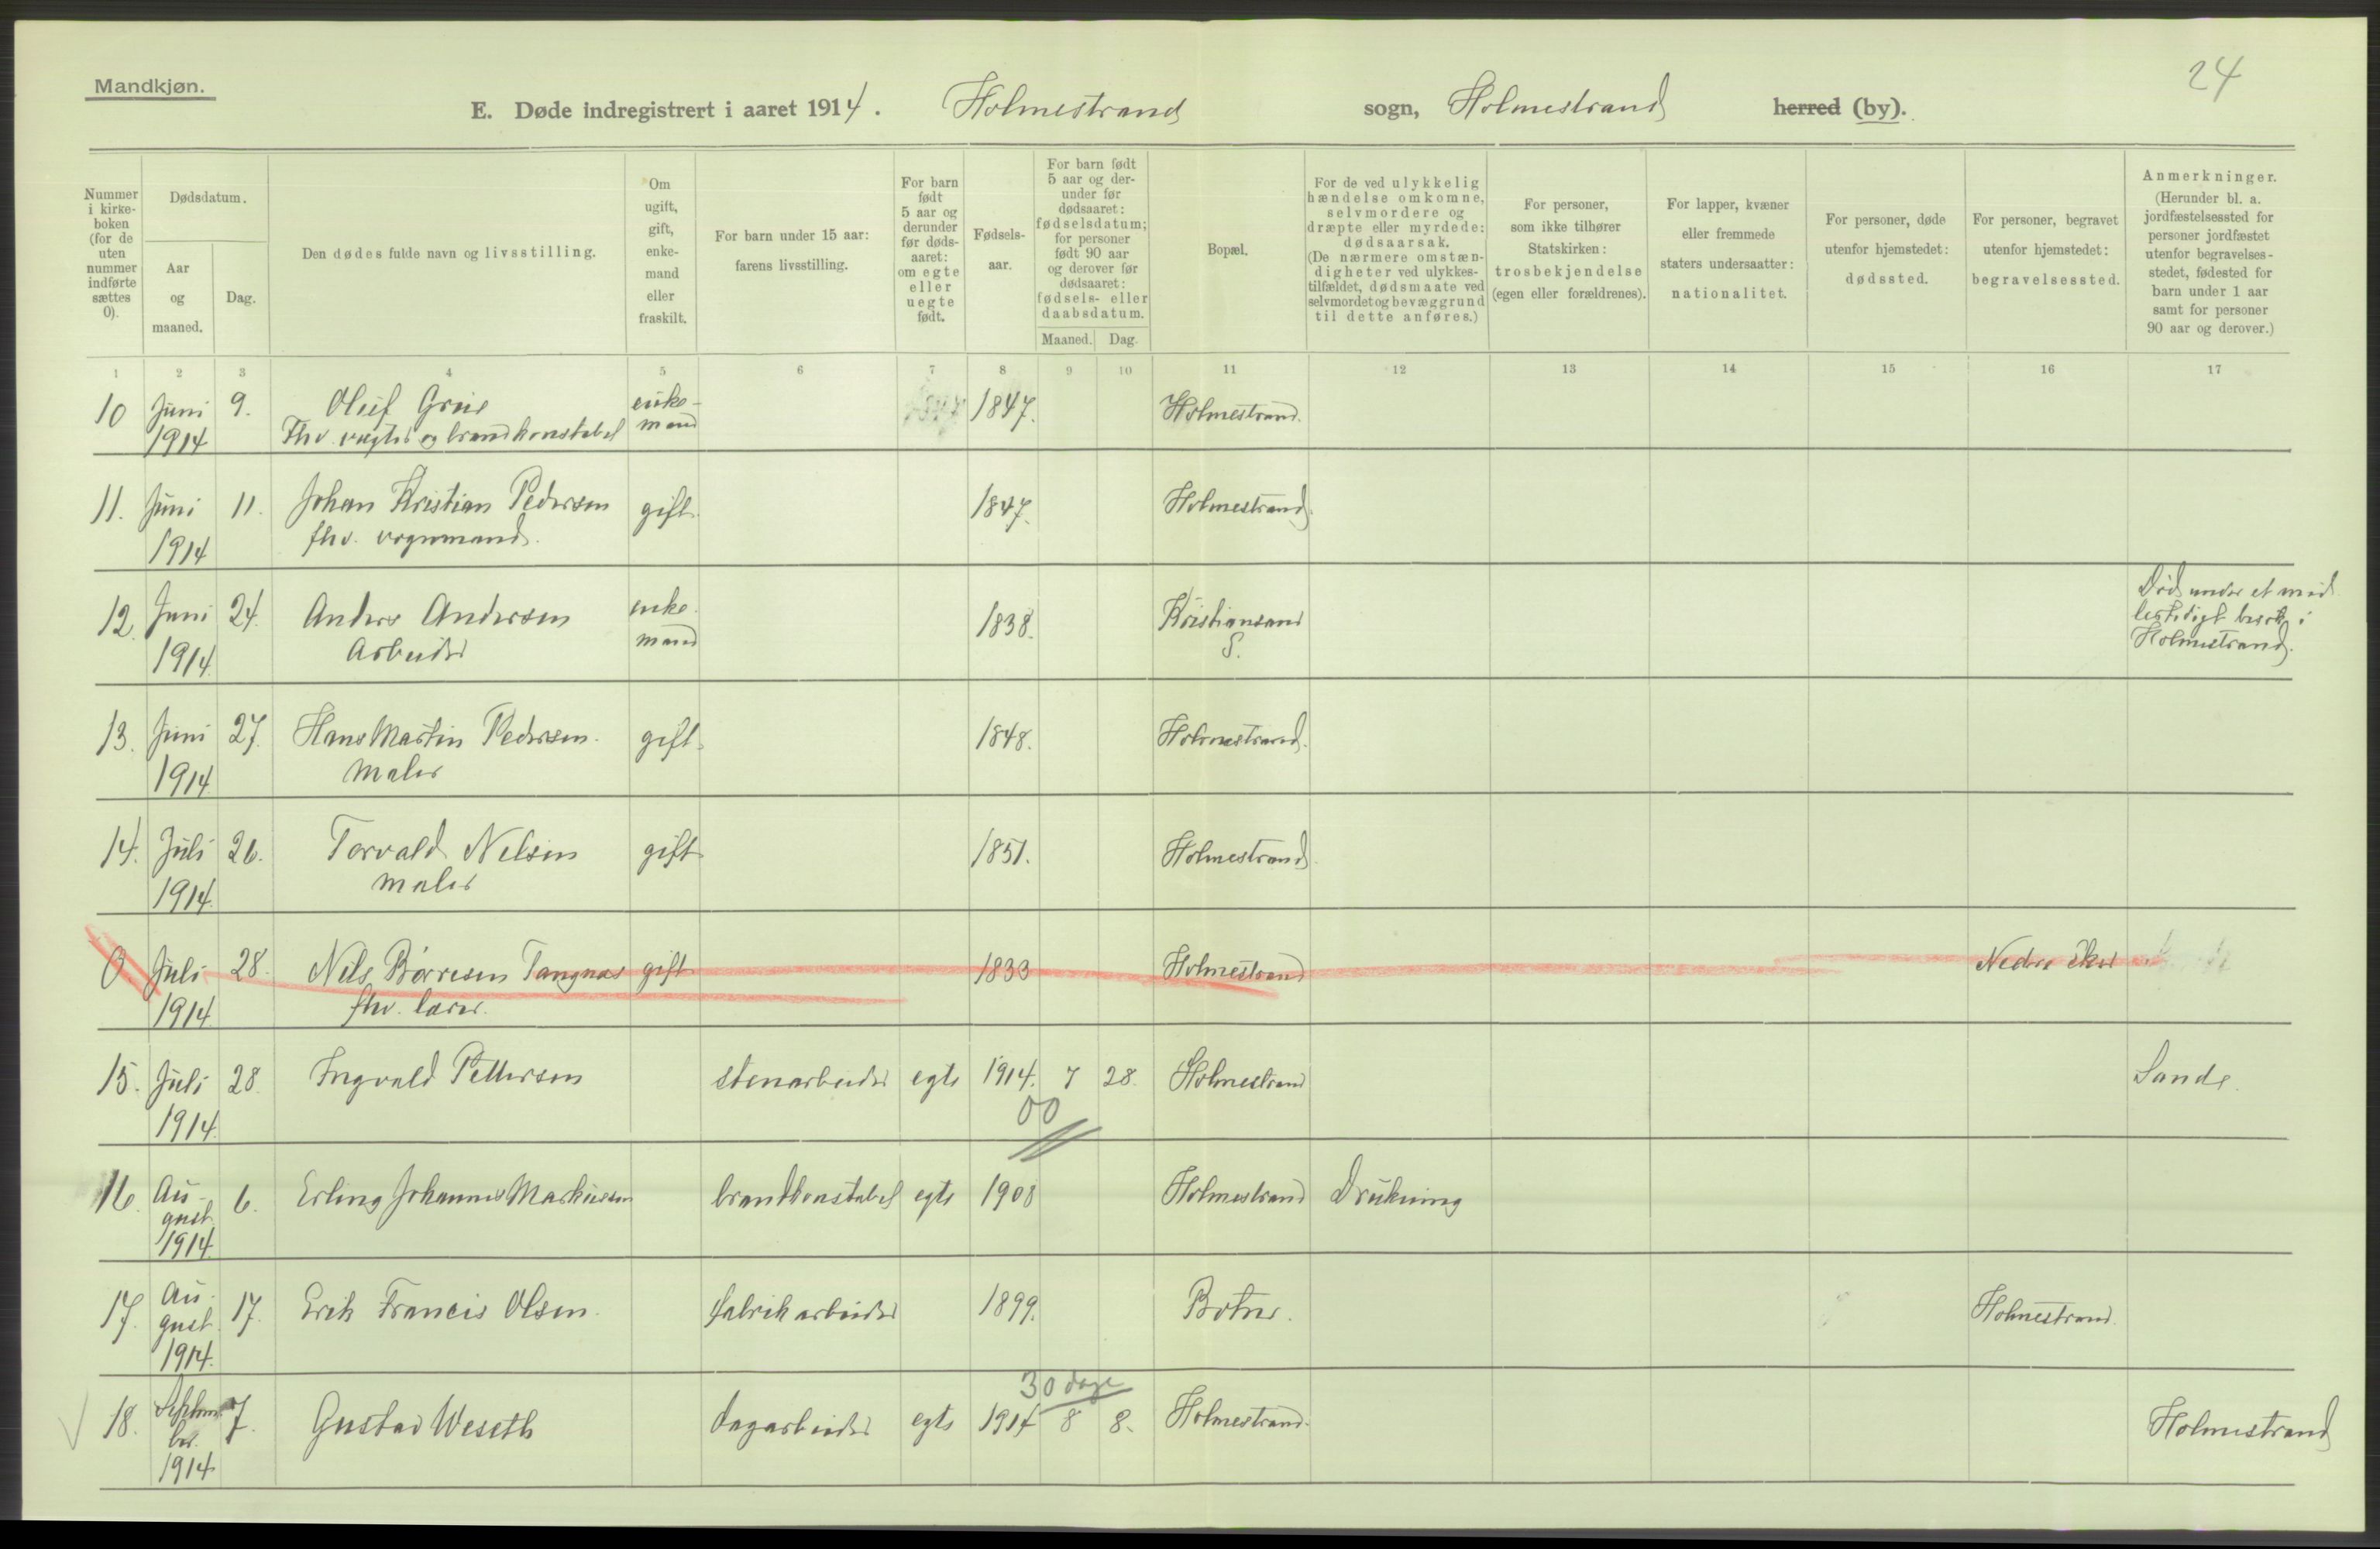 24
Mandkjøn.
E. Døde indregistrert i aaret 1914. Holmestrand sogn, Holmestrand herred (by).
Nummer i kirke-boken (for de uten nummer indførte sættes 0).
Dødsdatum.
Aar og maaned.
Dag.
Den dødes fulde navn og livsstilling.
Om ugift, gift, enke-mand eller fraskilt.
For barn under 15 aar: farens livsstilling.
For barn født 5 aar og derunder før døds-aaret: om egte eller uegte født.
Fødsels-aar.
For barn født 5 aar og der-under før dødsaaret: fødselsdatum; for personer født 90 aar og derover før dødsaaret: fødsels- eller daabsdatum.
Maaned. Dag.
Bopæl.
For de ved ulykkelig hændelse omkomne, selvmordere og dræpte eller myrdede: dødsaarsak. (De nærmere omstæn-digheter ved ulykkes-tilfældet, dødsmaate ved selvmordet og bevæggrund til dette anføres.)
For personer, som ikke tilhører Statskirken: trosbekjendelse (egen eller forældrenes).
For lapper, kvæner eller fremmede staters undersaatter: nationalitet.
For personer, døde utenfor hjemstedet: dødssted.
For personer, begravet utenfor hjemstedet: begravelsessted.
Anmerkninger. (Herunder bl. a. jordfæstelsessted for personer jordfæstet utenfor begravelses-stedet, fødested for barn under 1 aar samt for personer 90 aar og derover.)
1 2 3 4 5 6 7 8 9 10 11 12 13 14 15 16 17
10 Juni 9. Oluf enke- 1847. Holmestrand.
1914 Fhv. vagter og brandkonstabel mand
11. Juni 11. Johan Kristian Pedersen gift 1847. Holmestrand
1914 fhv. vognmand.
12. Juni 24. Anders Andersen enke- 1838. Kristiansand Død under et mid-
1914 Arbeider mand S. lertidigt besøk i
Holmestrand.
13. Juni 27. Hans Martin Pedersen. gift 1848. Holmestrand.
1914 Maler
14. Juli 26. Torvald Nelsen gift 1851. Holmestrand
1914 maler
0 Juli 28. Nils Børresen Tangnæs gift 1833 Holmestrand Nedre Eker
1914 fhv. lærer.
15. Juli 28. Ingvald Pettersen stenarbeider egte 1914. 7 28. Holmestrand Sande.
1914 00
16. Au- 6. Erling Johannes Markussen brandkonstabel egte 1908 Holmestrand Drukning
gust
1914
17. Au- 17. Erik Francis Olsen. fabrikarbeider 1899. Botne. Holmestrand.
gust.
1914.
30 dage
18. Septem- 7. Gustav Weseth dagarbeider egte 1914 8 8. Holmestrand. Holmestrand
ber.
1914